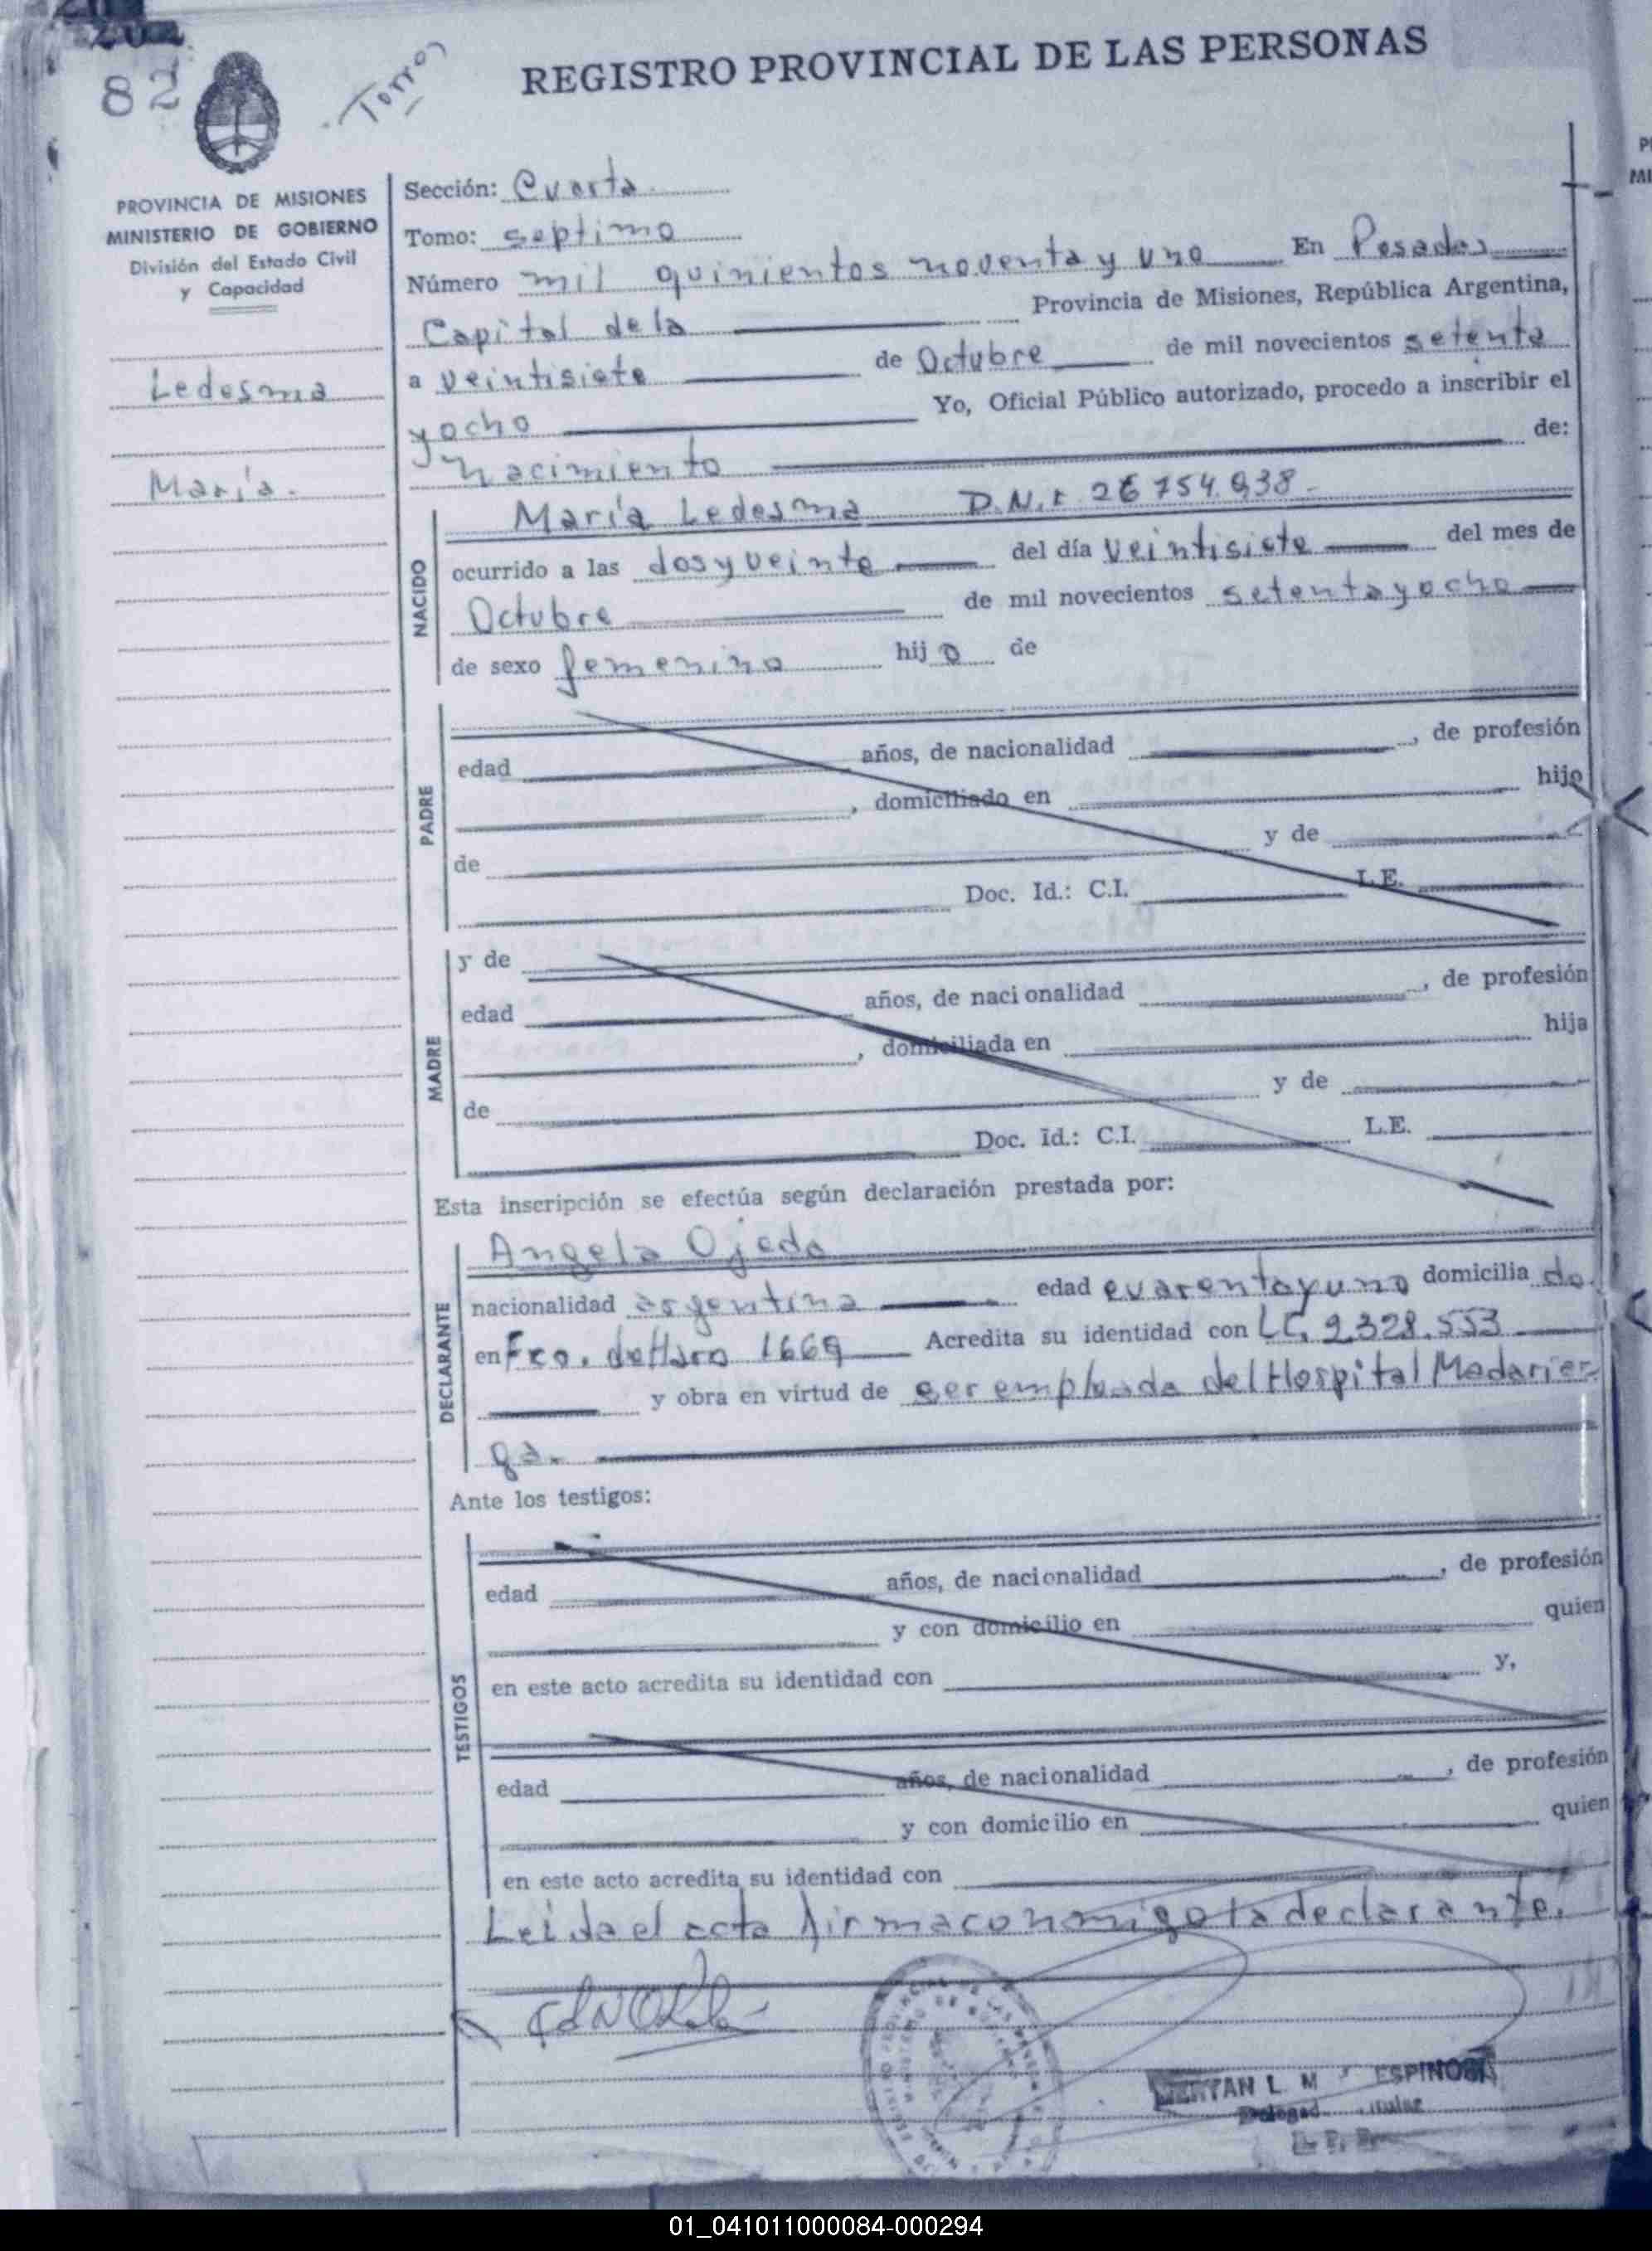 82
Torres
REGISTRO PROVINCIAL DE LAS PERSONAS
PROVINCIA DE MISIONES
MINISTERIO DE GOBIERNO
División del Estado Civil
y Capacidad
Ledesma
María.
Sección: Cuarta
Tomo: septimo
Número mil quinientos noventa y uno En Posadas
Capital de la Provincia de Misiones, República Argentina,
a veintisiete de Octubre de mil novecientos setenta
y ocho Yo, Oficial Público autorizado, procedo a inscribir el
nacimiento de:
NACIDO
María Ledesma D.N.I. 26.754.938-
ocurrido a las dos y veinte del día veintisiete del mes de
Octubre de mil novecientos setenta y ocho
de sexo femenino hij o de
PADRE
edad años, de nacionalidad , de profesión
, domiciliado en hijo
de y de
Doc. Id.: C.I. L.E.
MADRE
y de
edad años, de nacionalidad , de profesión
, domiciliada en hija
de y de
Doc. Id.: C.I. L.E.
Esta inscripción se efectúa según declaración prestada por:
DECLARANTE
Angela Ojeda
nacionalidad argentina edad cuarenta y uno domicilia do
en Fco. de Haro 1669 Acredita su identidad con LC. 2.328.553
y obra en virtud de ser empleada del Hospital Madaria-
ga.
Ante los testigos:
TESTIGOS
edad años, de nacionalidad , de profesión
y con domicilio en quien
en este acto acredita su identidad con y,
edad años, de nacionalidad , de profesión
y con domicilio en quien
en este acto acredita su identidad con
Leida el acta firma conmigo la declarante.
ESPINOSA
01_041011000084-000294